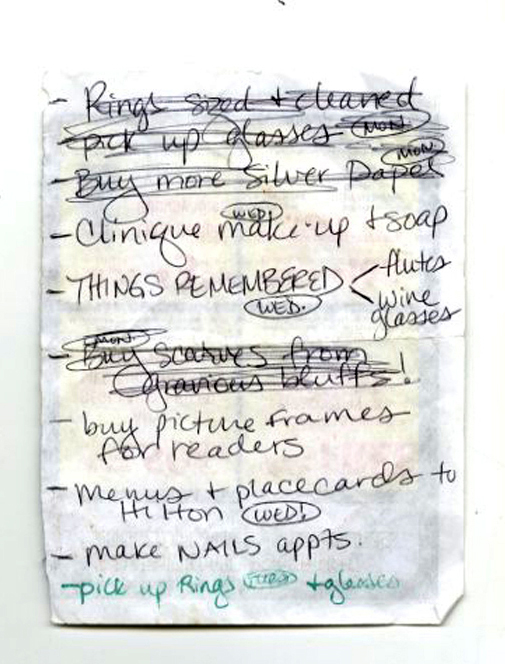 - Rings sized + cleaned
- pick up glasses MON.
- Buy more silver paper MON.
- Clinique make-up + soap WED.
- THINGS REMEMBERED < flutes
WED. wine
glasses
- Buy scarves from MON.
Gravious bluffs!
- buy picture frames
for readers
- menus + placecards to
Hilton WED!
- make NAILS appts.
- pick up Rings + glasses